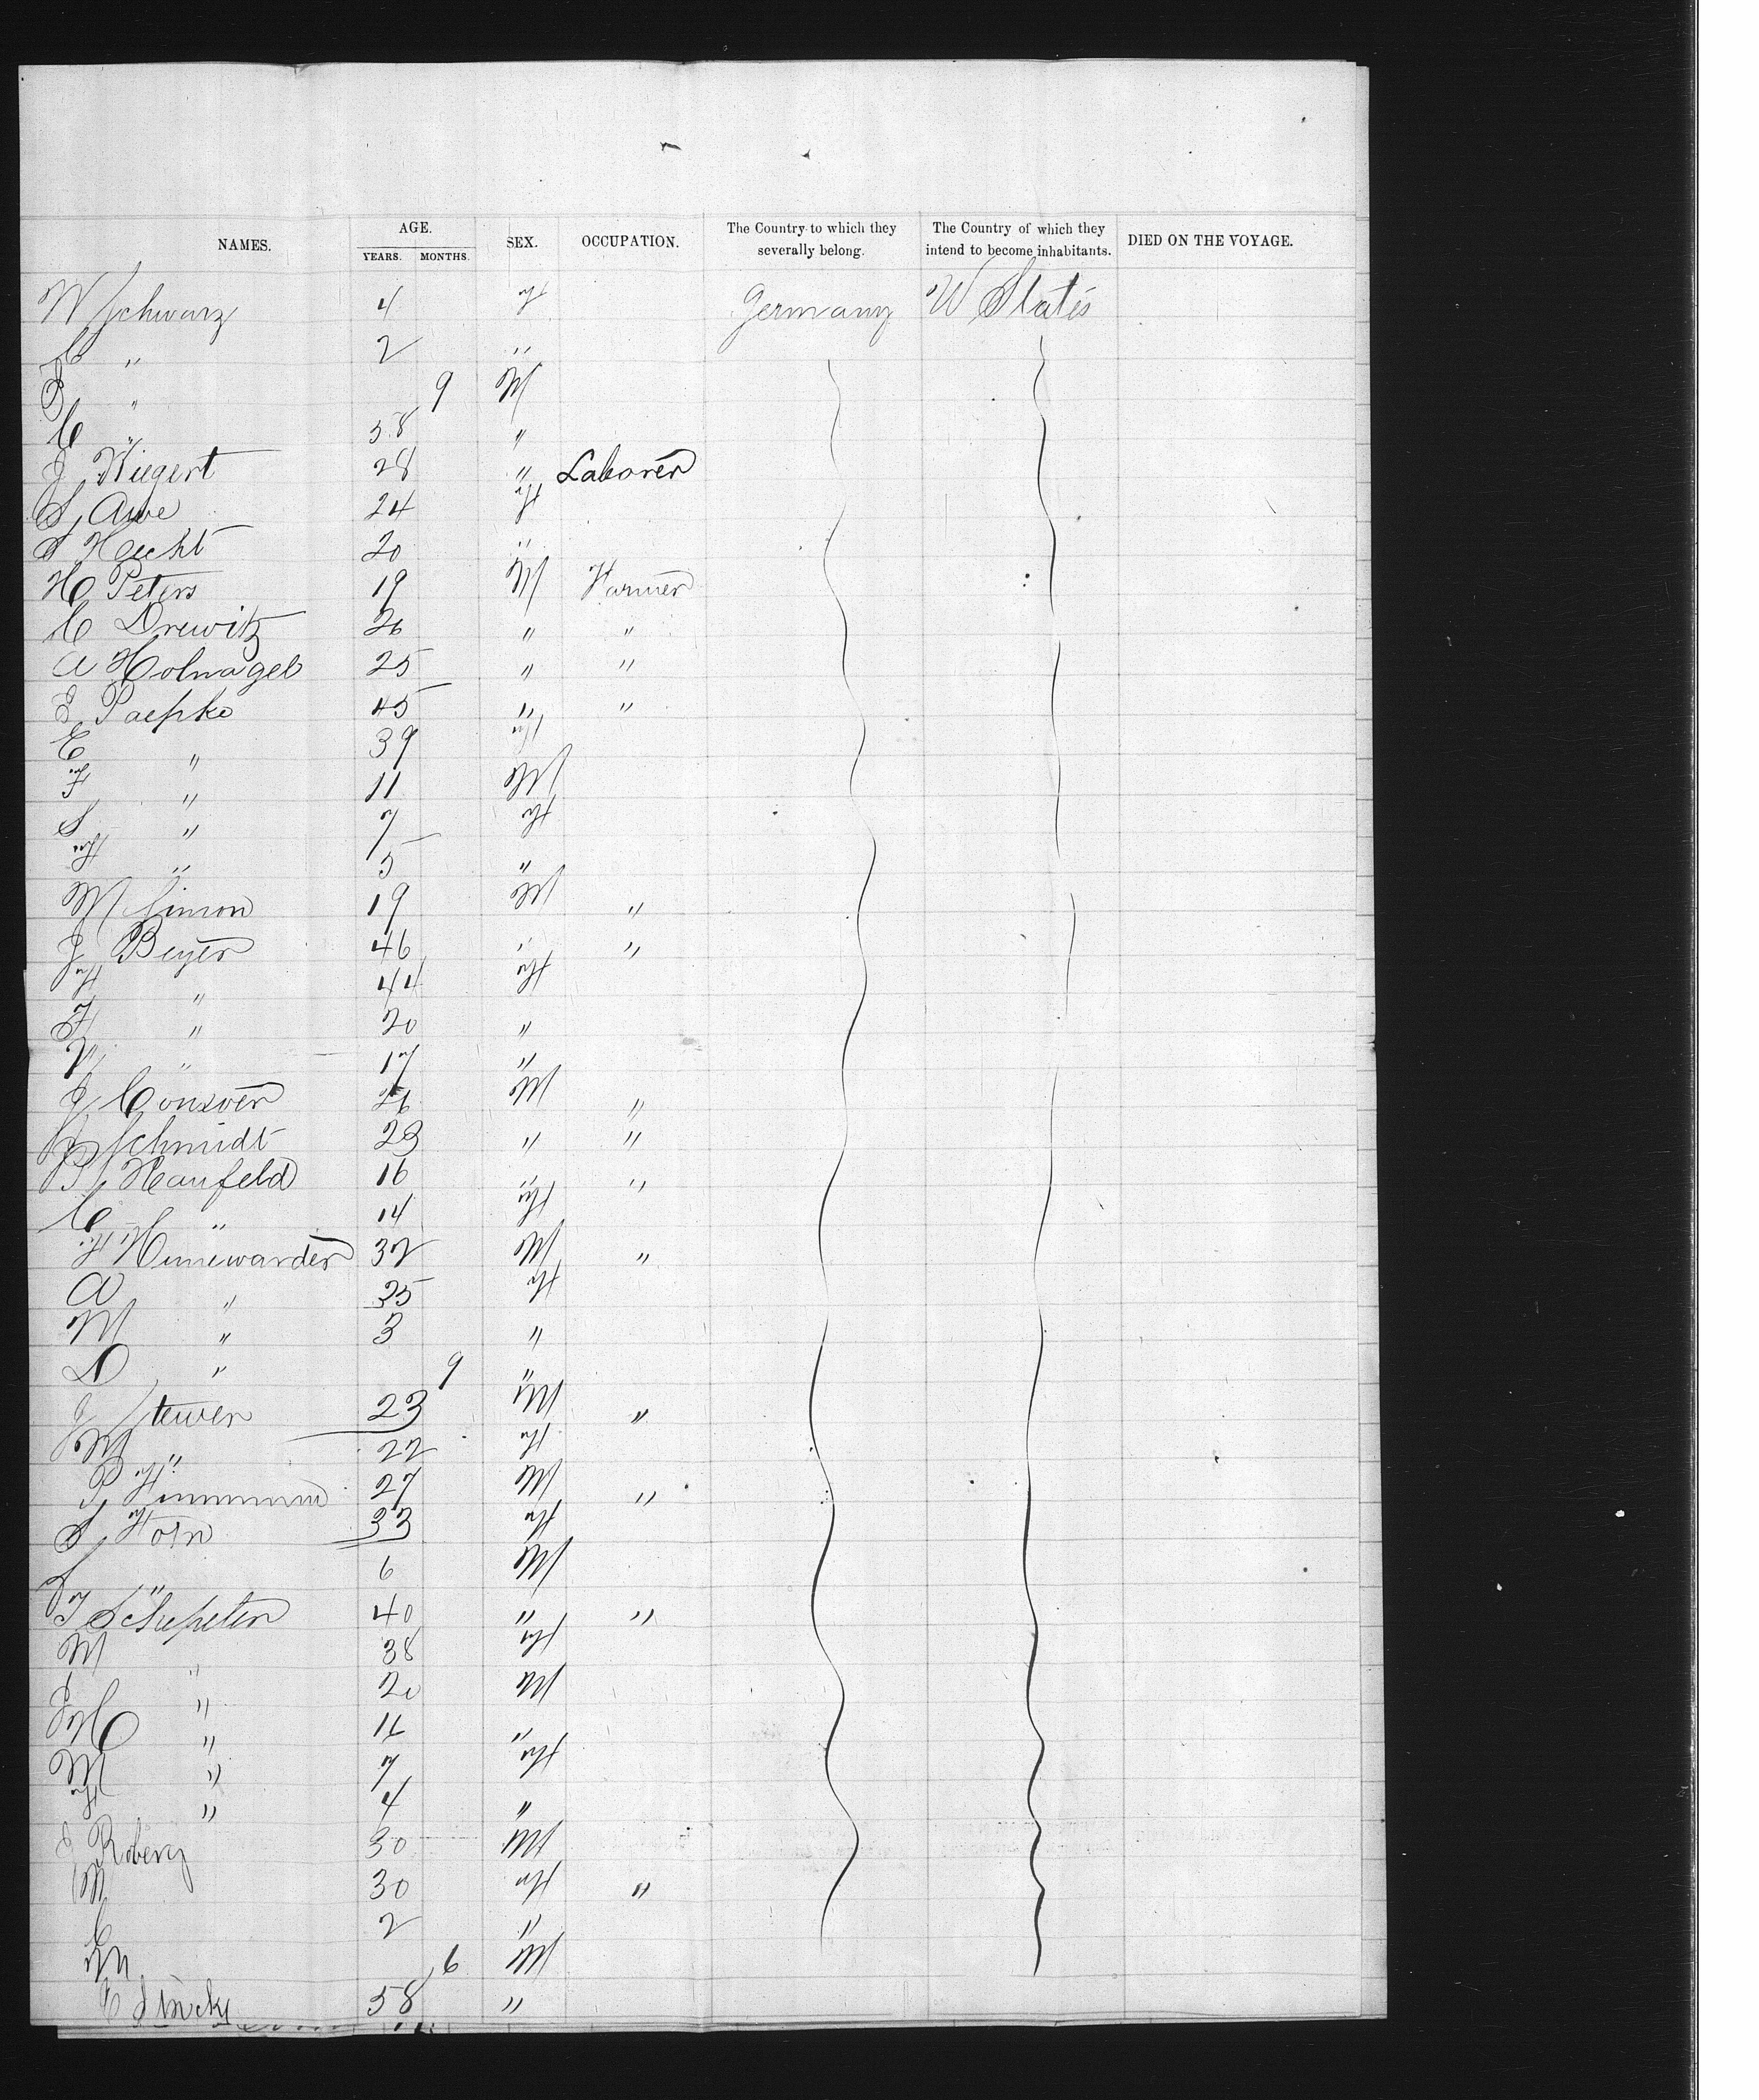 NAMES. AGE. YEARS. MONTHS. SEX. OCCUPATION. The Country to which they severally belong. The Country of which they intend to become inhabitants. DIED ON THE VOYAGE.
W Schwarz 4 F Germany U States
C " 2 "
" 9 M
C " 58 "
J Wiegert 28 " Laborer
S Awe 24 F
S Haecht 20 "
H Peters 19 M Farmer
C Drewitz 26 " "
A Holnagel 25 " "
E Paepke 45 " "
C " 39 F
F " 11 M
S " 7 F
F " 5 "
M Simon 19 M "
J Beyer 46 " "
F " 44 F
" 20 "
" 17 "
J 26 M "
Schmidt 23 " "
P Haufeld 16 " "
C " 14 F
F Hunewarder 32 M "
A " 25 F
M " 3 "
D " 9 "
J Stewer 23 M "
M " 22 F
P 27 M "
S Horn 33 F
" 6 M
40 " "
M " 38 F
J " 20 M
H " 14 "
M " 7 F
F " 4 "
J Roberg 30 M
M 30 F "
C 2 "
6 M
C 58 "